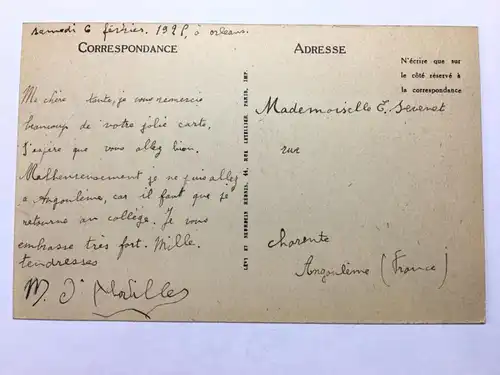 samedi 6 février. 192 , à orleans.
CORRESPONDANCE
Ma chère tante, je vous remercie
beaucoup de votre jolie carte.
J'espère que vous allez bien.
Malheureusement je ne puis allez
à Angoulème, car il faut que je
retourne au collège. Je vous
embrasse très fort. Mille.
tendresses
M.
LÉVY ET NEURDEIN RÉUNIS, 44, RUE LETELLIER, PARIS, IMP.
ADRESSE
N'écrire que sur
le côté réservé à
la correspondance
Mademoiselle
rue
charente
Angoulème (France)